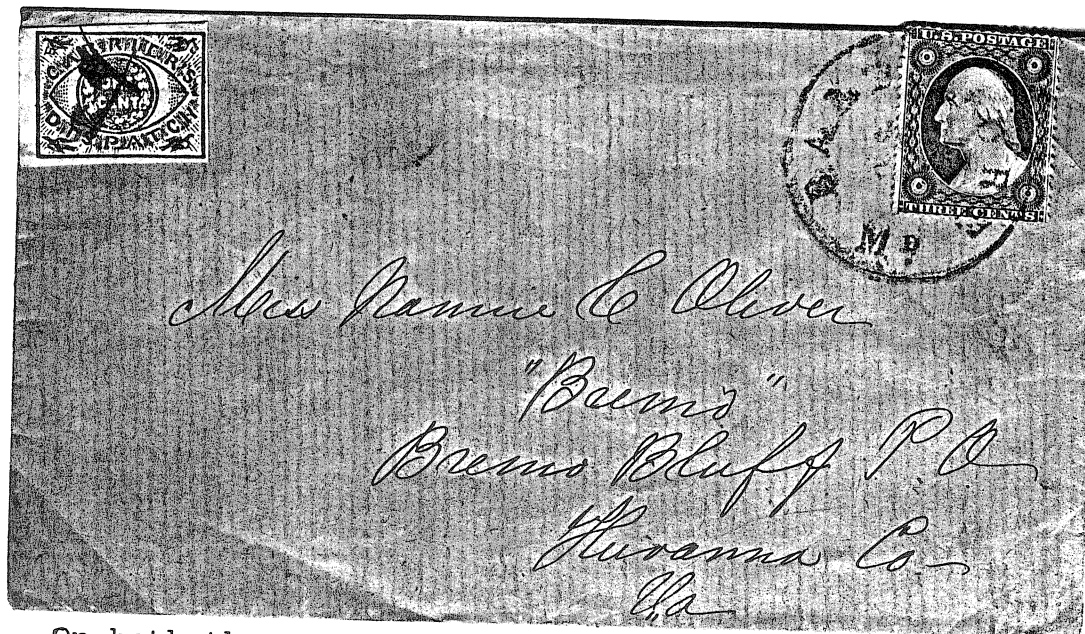 CARRIER'S
ONE
CENT
DISPATCH
U.S. POSTAGE
THREE CENTS
BAL
Md
Miss Nannie C Oliver
"Bremo"
Bremo Bluff P O
Fluvanna Co
Va
On both